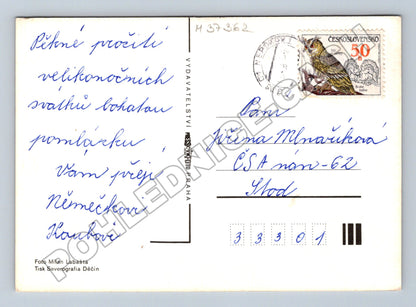 H 37362
Pěkné prožití
velikonočních
svátků bohatou
pomlázku
Vám přejí
Němečkovi
VYDAVATELSTVÍ
PRAHA
Foto Milan
Tisk Severografia Děčín
ČESKOSLOVENSKO
50
POHLEDNICE
Paní
Mlnaříková
ČSA nam-62
Stod
33301